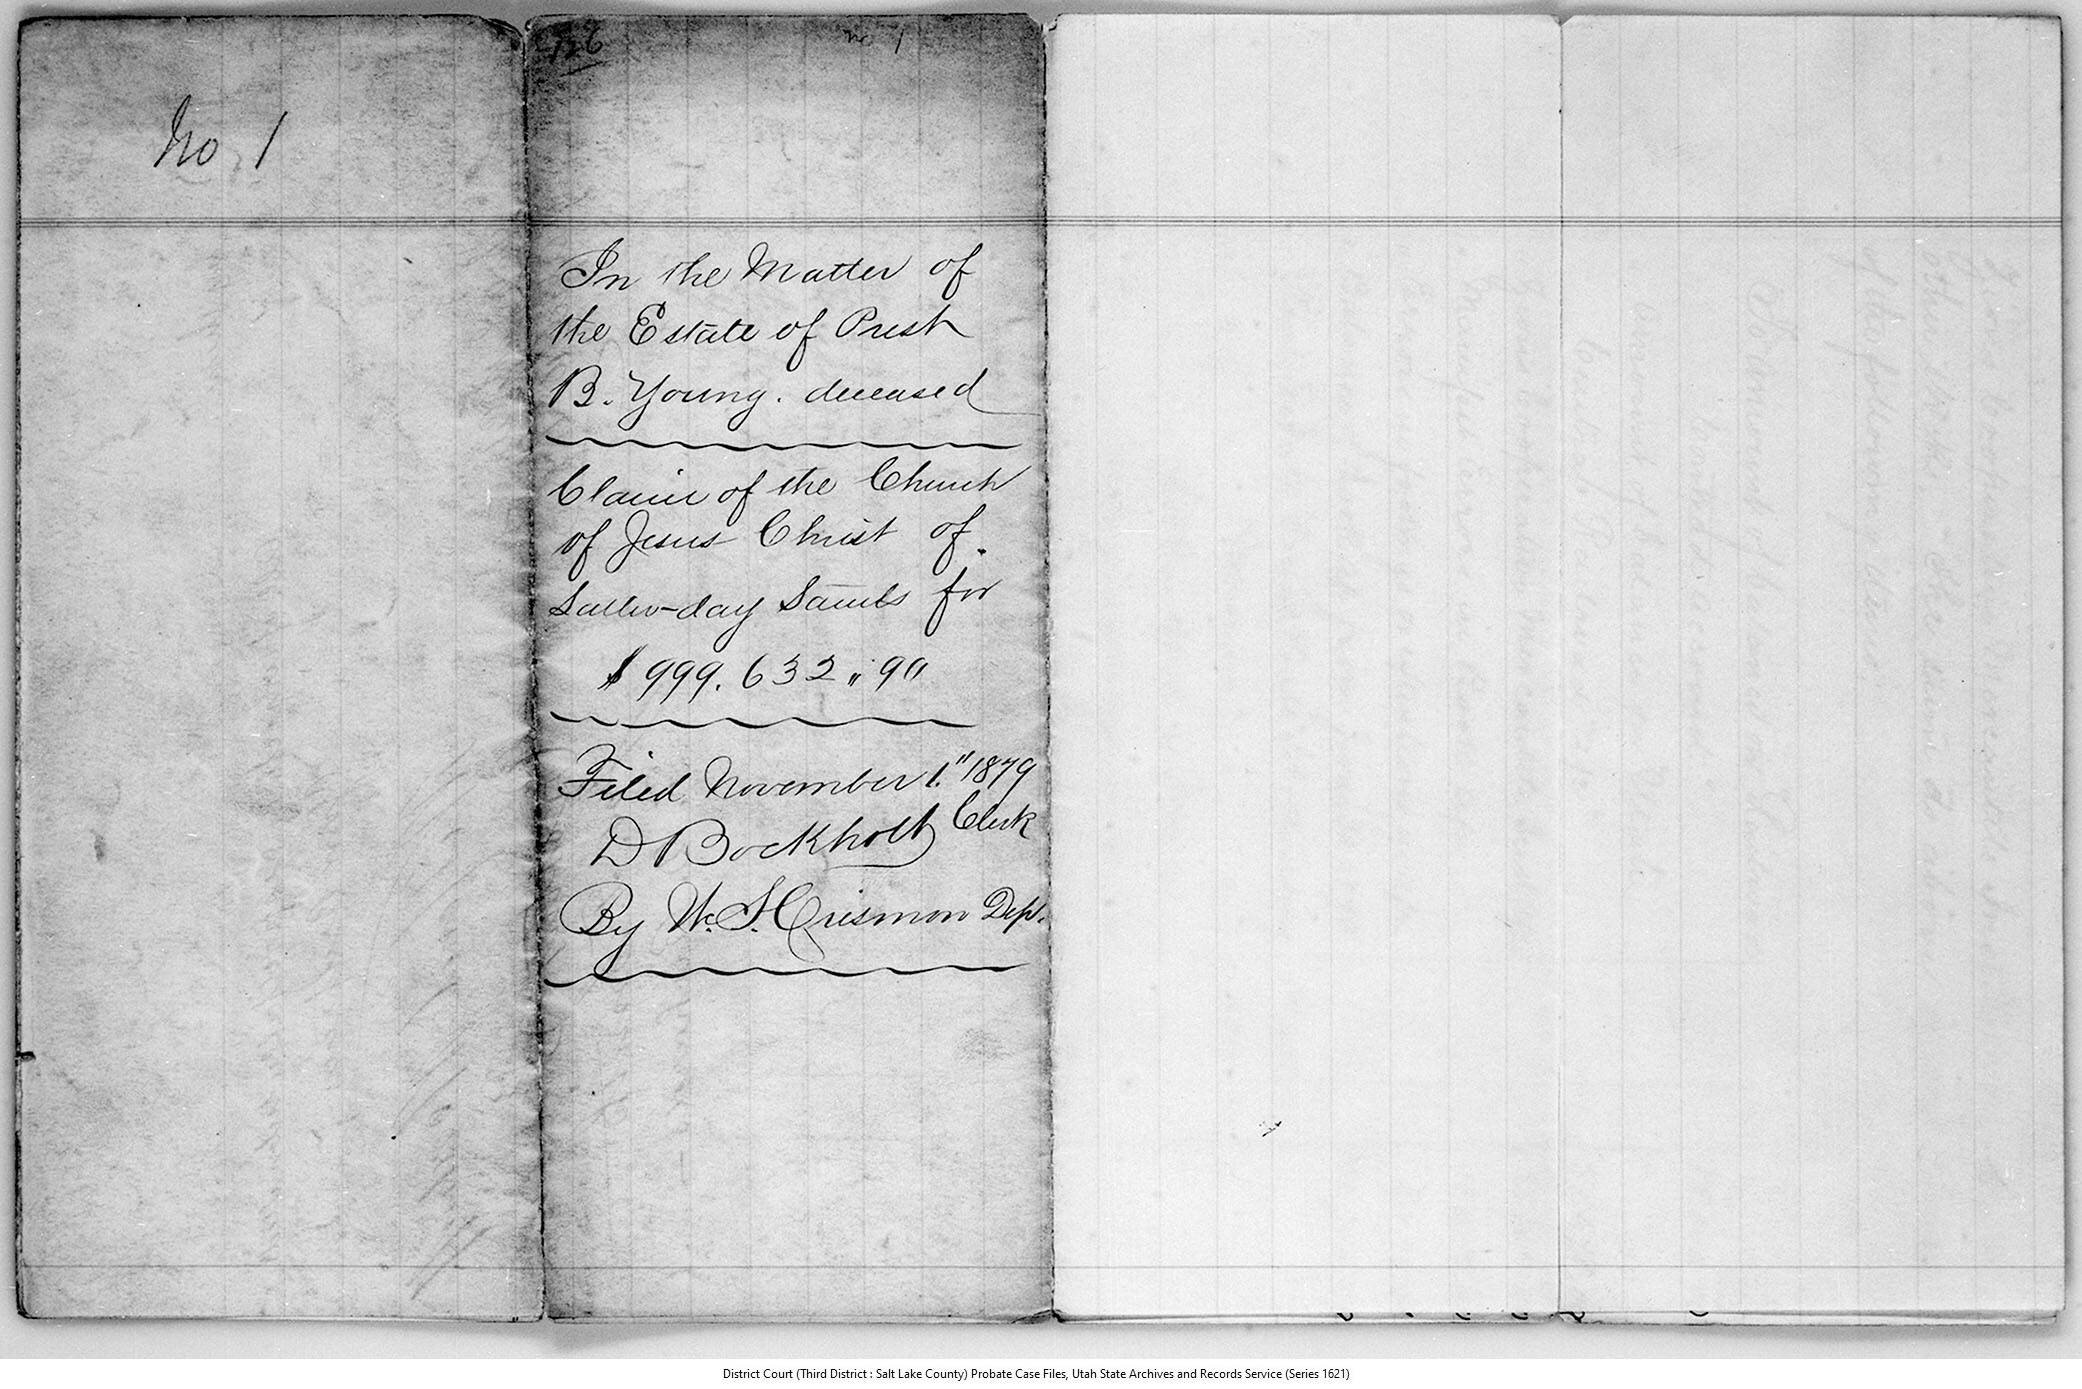 No 1
726
No 1
In the Matter of
the Estate of Prest
B. Young. deceased
Claim of the Church
of Jesus Christ of
Latter-day Saints for
$999.632„90
Filed November 1." 1879
D Bockholt Clerk
By W. S. Crismon Dep.
District Court (Third District : Salt Lake County) Probate Case Files, Utah State Archives and Records Service (Series 1621)